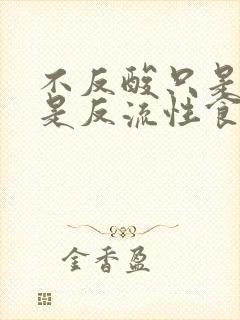 不反酸只是
是反流性食
金香盈